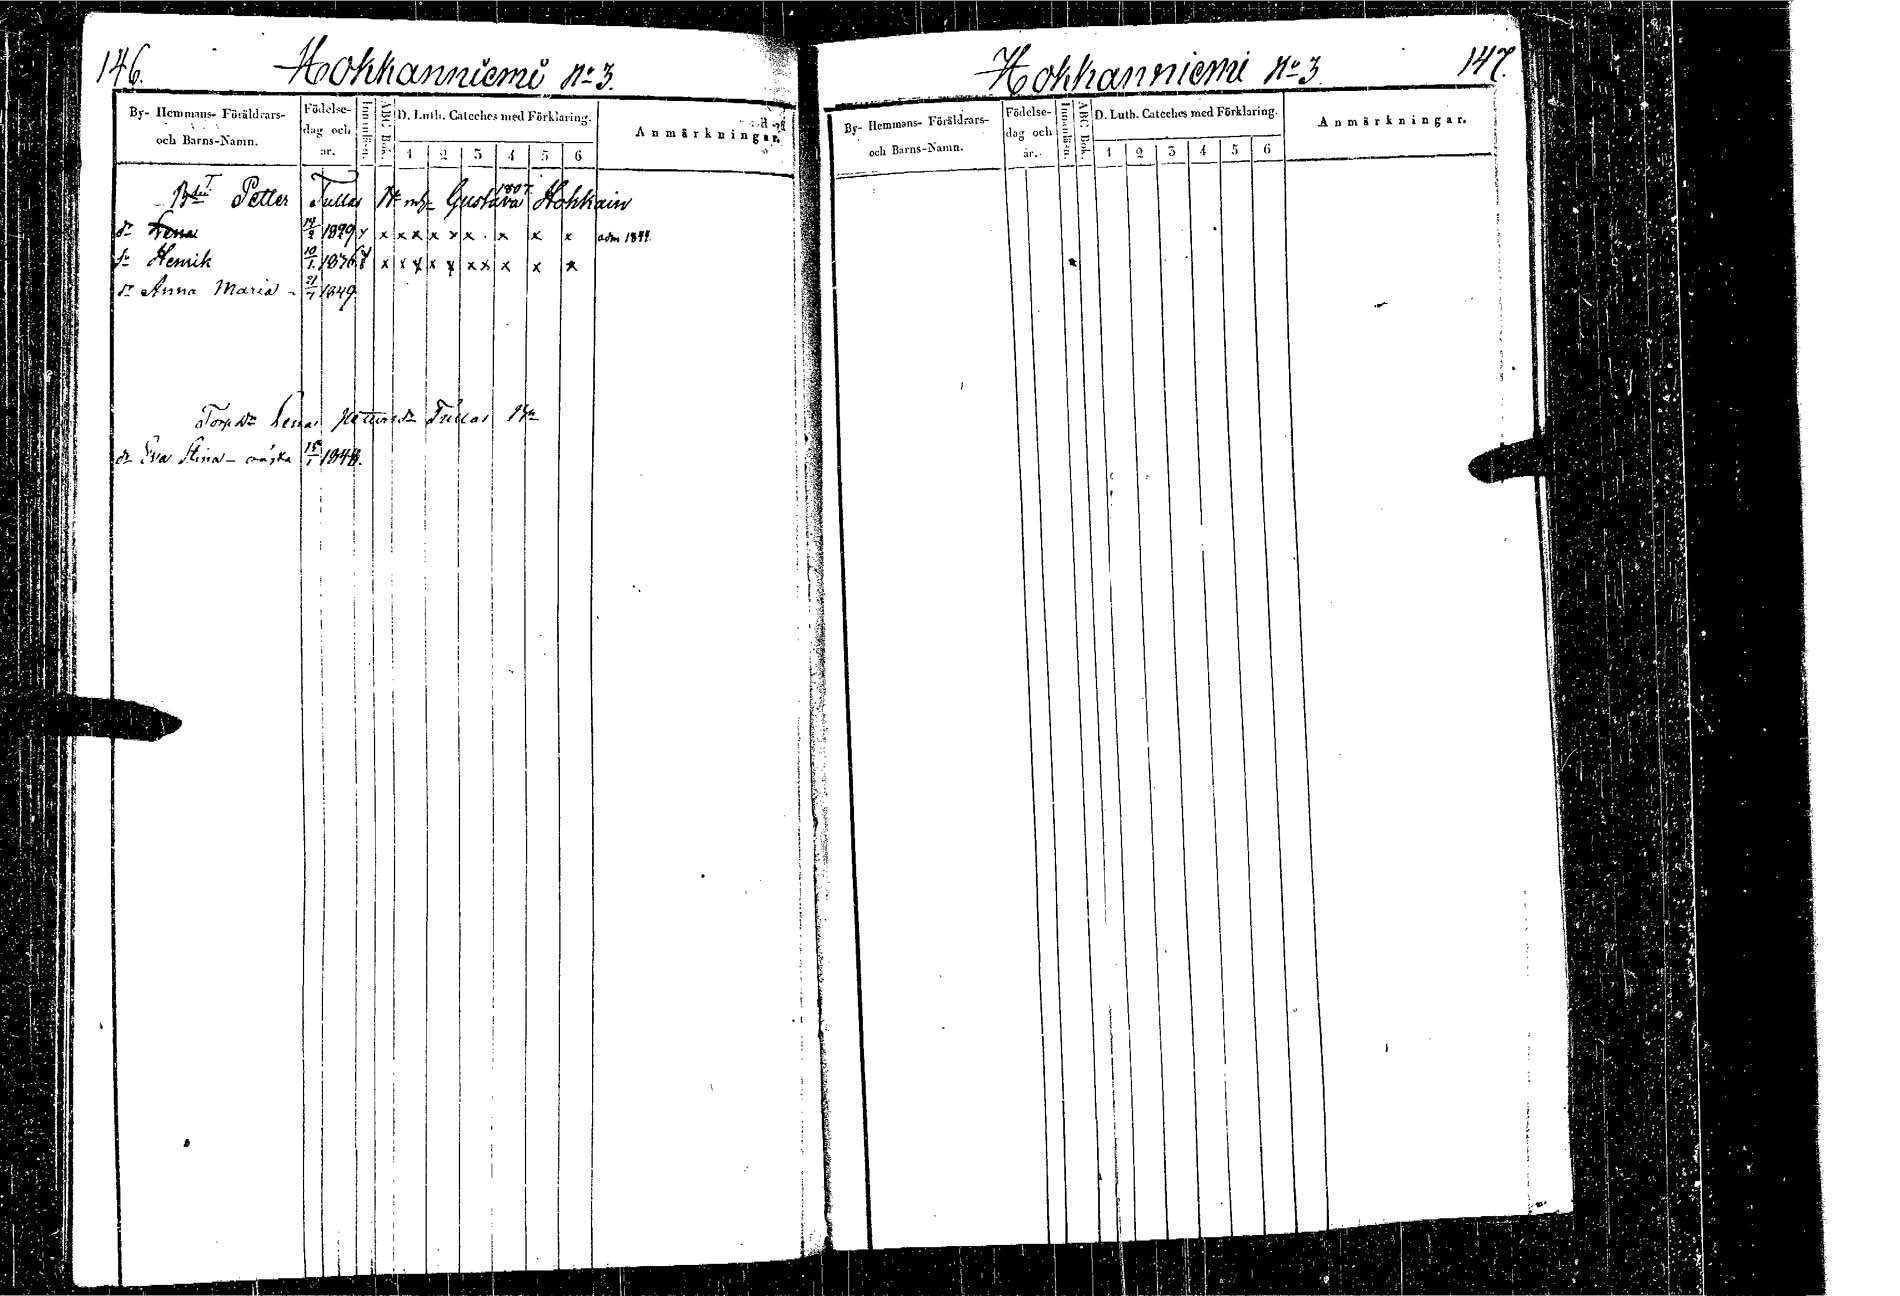 146.
Hokkanniemi No 3.
By- Hemmans- Föräldrars-
och Barns-Namn.
Födelse-
dag och
år.
Innanläsn.
ABC Bok.
D. Luth. Cateches med Förklaring.
1 2 3 4 5 6
Anmärkningar.
Petter Tullas Gustava 1807. Hokkain
dr Lena 14/2 1829 x x x x x x x . x x x adm 1844.
sn Henrik 10/1 1836 x x x x x x x x x x
dr Anna Maria - 21/4 1849.
Torp dr Lena Tullas
dr Eva Stina - 15/1 1848.
Hokkanniemi No 3
147.
By- Hemmans- Föräldrars-
och Barns-Namn.
Födelse-
dag och
år.
Innanläsn.
ABC Bok.
D. Luth. Cateches med Förklaring.
1 2 3 4 5 6
Anmärkningar.